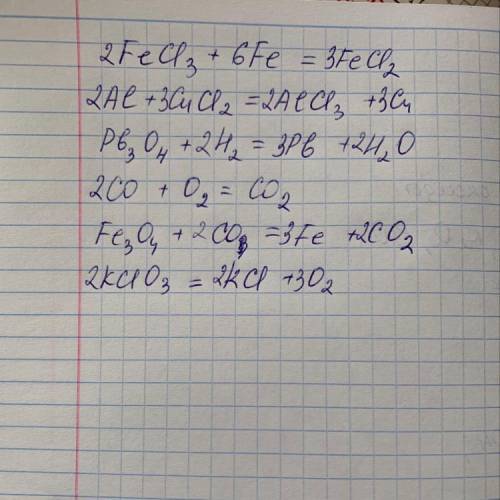 2FeCl₃ + 6Fe = 3FeCl₂
2Al + 3CuCl₂ = 2AlCl₃ + 3Cu
Pb₃O₄ + 2H₂ = 3Pb + 2H₂O
2CO + O₂ = CO₂
Fe₃O₄ + 2CO = 3Fe + 2CO₂
2KClO₃ = 2KCl + 3O₂